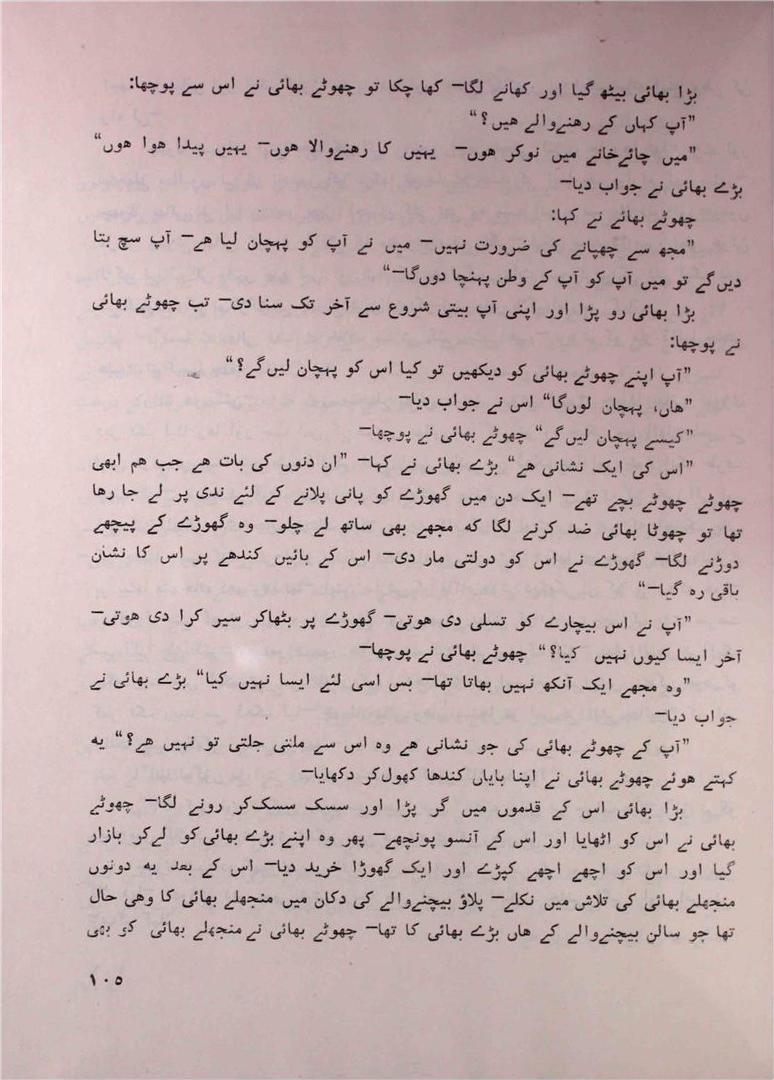 بڑا بھائی بیٹھ گیا اور کھانے لگا— کھا چکا تو چھوٹے بھائی نے اس سے پوچھا:
”آپ کہاں کے رھنےوالے ھیں؟“
”میں چائےخانے میں نوکر ھوں— یہیں کا رھنےوالا ھوں— یہیں پیدا ھوا ھوں“
بڑے بھائی نے جواب دیا—
چھوٹے بھائے نے کہا:
”مجھ سے چھپانے کی ضرورت نہیں— میں نے آپ کو پہچان لیا ھے— آپ سچ بتا
دیں گے تو میں آپ کو آپ کے وطن پہنچا دوں گا—“
بڑا بھائی رو پڑا اور اپنی آپ بیتی شروع سے آخر تک سنا دی— تب چھوٹے بھائی
نے پوچھا:
”آپ اپنے چھوٹے بھائی کو دیکھیں تو کیا اس کو پہچان لیں گے؟“
”ھاں، پہچان لوں گا“ اس نے جواب دیا—
”کیسے پہچان لیں گے“ چھوٹے بھائی نے پوچھا—
”اس کی ایک نشانی ھے“ بڑے بھائی نے کہا— ”ان دنوں کی بات ھے جب ھم ابھی
چھوٹے چھوٹے بچے تھے— ایک دن میں گھوڑے کو پانی پلانے کے لئے ندی پر لے جا رھا
تھا تو چھوٹا بھائی ضد کرنے لگا که مجھے بھی ساتھ لے چلو— وہ گھوڑے کے پیچھے
دوڑنے لگا— گھوڑے نے اس کو دولتی مار دی— اس کے بائیں کندھے پر اس کا نشان
باقی رہ گیا—“
”آپ نے اس بیچارے کو تسلی دی ھوتی— گھوڑے پر بٹھاکر سیر کرا دی ھوتی—
آخر ایسا کیوں نہیں کیا؟“ چھوٹے بھائی نے پوچھا—
”وہ مجھے ایک آنکھ نہیں بھاتا تھا— بس اسی لئے ایسا نہیں کیا“ بڑے بھائی نے
جواب دیا—
”آپ کے چھوٹے بھائی کی جو نشانی ھے وہ اس سے ملتی جلتی تو نہیں ھے؟“ یه
کہتے ھوئے چھوٹے بھائی نے اپنا بایاں کندھا کھول کر دکھایا—
بڑا بھائی اس کے قدموں میں گر پڑا اور سسک سسک کر رونے لگا— چھوٹے
بھائی نے اس کو اٹھایا اور اس کے آنسو پونچھے— پھر وہ اپنے بڑے بھائی کو لے کر بازار
گیا اور اس کو اچھے اچھے کپڑے اور ایک گھوڑا خرید دیا— اس کے بعد یه دونوں
منجھلے بھائی کی تلاش میں نکلے— پلاؤ بیچنےوالے کی دکان میں منجھلے بھائی کا وھی حال
تھا جو سالن بیچنےوالے کے ھاں بڑے بھائی کا تھا— چھوٹے بھائی نے منجھلے بھائی کو بھی
۱۰۵